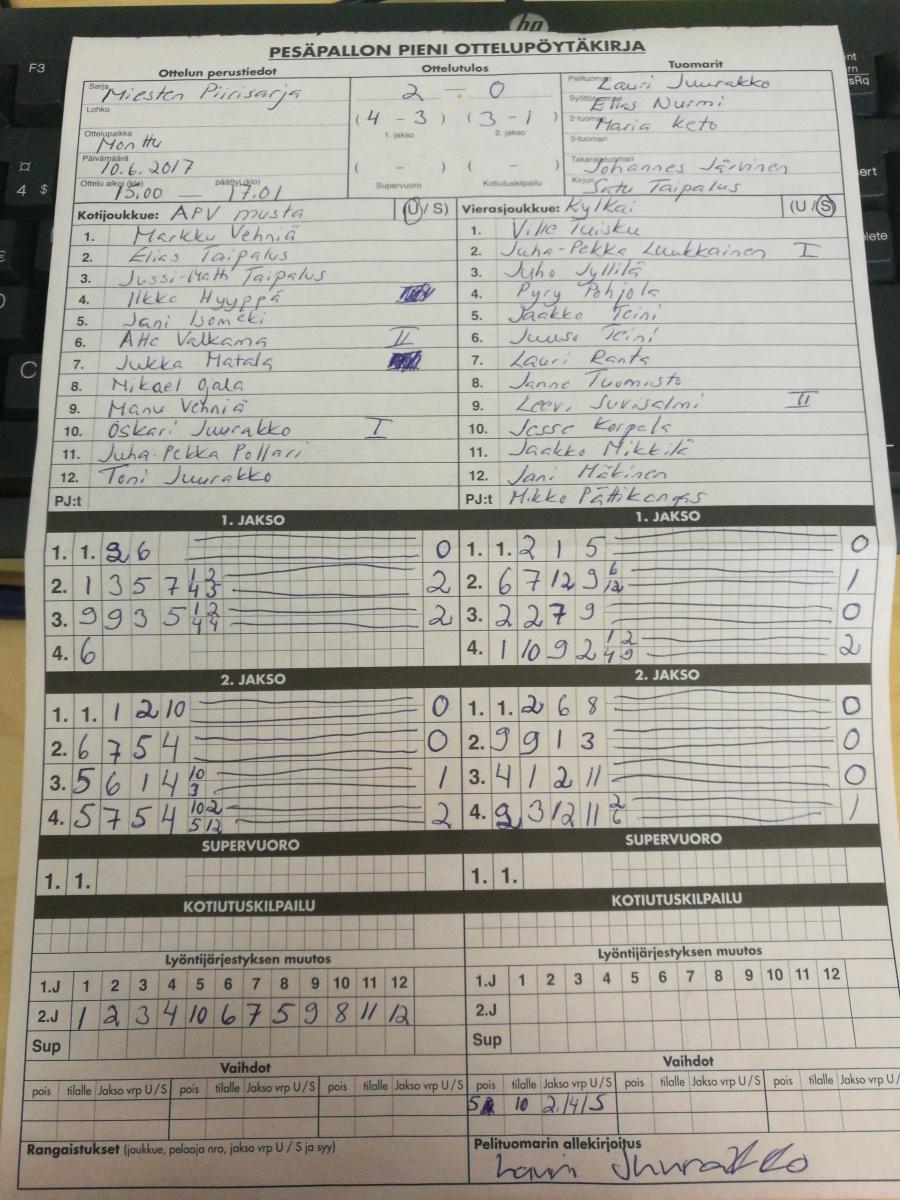 F3
4 $
C
hp
PESÄPALLON PIENI OTTELUPÖYTÄKIRJA
Ottelun perustiedot Ottelutulos Tuomarit
Sarja Miesten Piirisarja 2 - 0 Pelituomari Lauri Juurakko
Lohko (4 - 3) (3 - 1) Syöttötuomari Elias Nurmi
1. jakso 2. jakso 2-tuomari Maria Keto
Ottelupaikka Monttu 3-tuomari
Päivämäärä 10.6.2017 ( - ) ( - ) Takarajatuomari Johannes Järvinen
Ottelu alkoi (klo) 15.00 — päättyi (klo) 17.01 Supervuoro Kotiutuskilpailu Kirjuri Satu Taipalus
Kotijoukkue: APV musta (U / S) Vierasjoukkue: Kylkai (U / S)
1. Markku Vehniä 1. Ville Tuisku
2. Elias Taipalus 2. Juha-Pekka Luukkainen I
3. Jussi-Matti Taipalus 3. Juho Jyllilä
4. Ilkka Hyyppä 4. Pyry Pohjola
5. Jani Isomäki 5. Jaakko Teini
6. Atte Valkama II 6. Juuso Teini
7. Jukka Matala 7. Lauri Ranta
8. Mikael Ojala 8. Janne Tuomisto
9. Manu Vehniä 9. Leevi Suvisalmi II
10. Oskari Juurakko I 10. Jesse Korpela
11. Juha-Pekka Pollari 11. Jaakko Mikkilä
12. Toni Juurakko 12. Jani Mäkinen
PJ:t PJ:t Mikko Pättikangas
1. JAKSO 1. JAKSO
1. 1. 3 6 0 1. 1. 2 1 5 0
2. 1 3 5 7 1 2 4 3 2 2. 6 7 12 9 6 12 1
3. 9 9 3 5 1 2 4 4 2 3. 2 2 7 9 0
4. 6 4. 1 10 9 2 1 2 4 9 2
2. JAKSO 2. JAKSO
1. 1. 1 2 10 0 1. 1. 2 6 8 0
2. 6 7 5 4 0 2. 9 9 1 3 0
3. 5 6 1 4 10 3 1 3. 4 1 2 11 0
4. 5 7 5 4 10 2 5 12 2 4. 2 3 12 11 2 6 1
SUPERVUORO SUPERVUORO
1. 1. 1. 1.
KOTIUTUSKILPAILU KOTIUTUSKILPAILU
Lyöntijärjestyksen muutos Lyöntijärjestyksen muutos
1.J 1 2 3 4 5 6 7 8 9 10 11 12 1.J 1 2 3 4 5 6 7 8 9 10 11 12
2.J 1 2 3 4 10 6 7 5 9 8 11 12 2.J
Sup Sup
Vaihdot Vaihdot
pois tilalle Jakso vrp U / S pois tilalle Jakso vrp U / S pois tilalle Jakso vrp U / S pois tilalle Jakso vrp U / S pois tilalle Jakso vrp U / S pois tilalle Jakso vrp U /
5 10 2./4/S
Rangaistukset (joukkue, pelaaja nro, jakso vrp U / S ja syy) Pelituomarin allekirjoitus
Lauri Juurakko